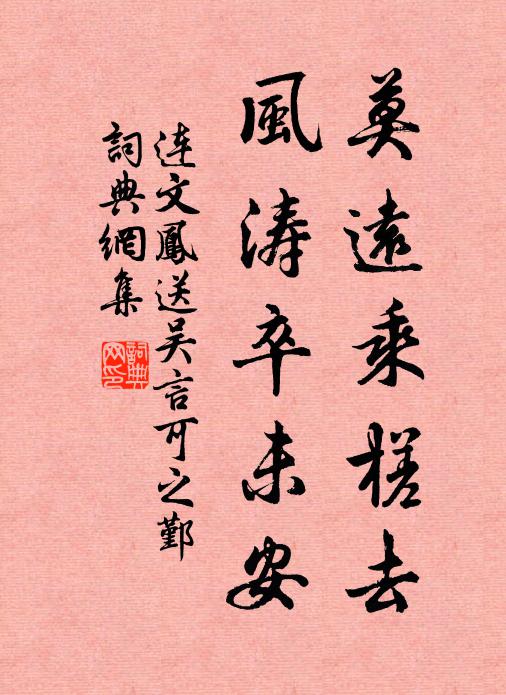 莫遠乘槎去
風濤卒未安
連文鳳送吴言可之鄞
詞典網集
詞典网印